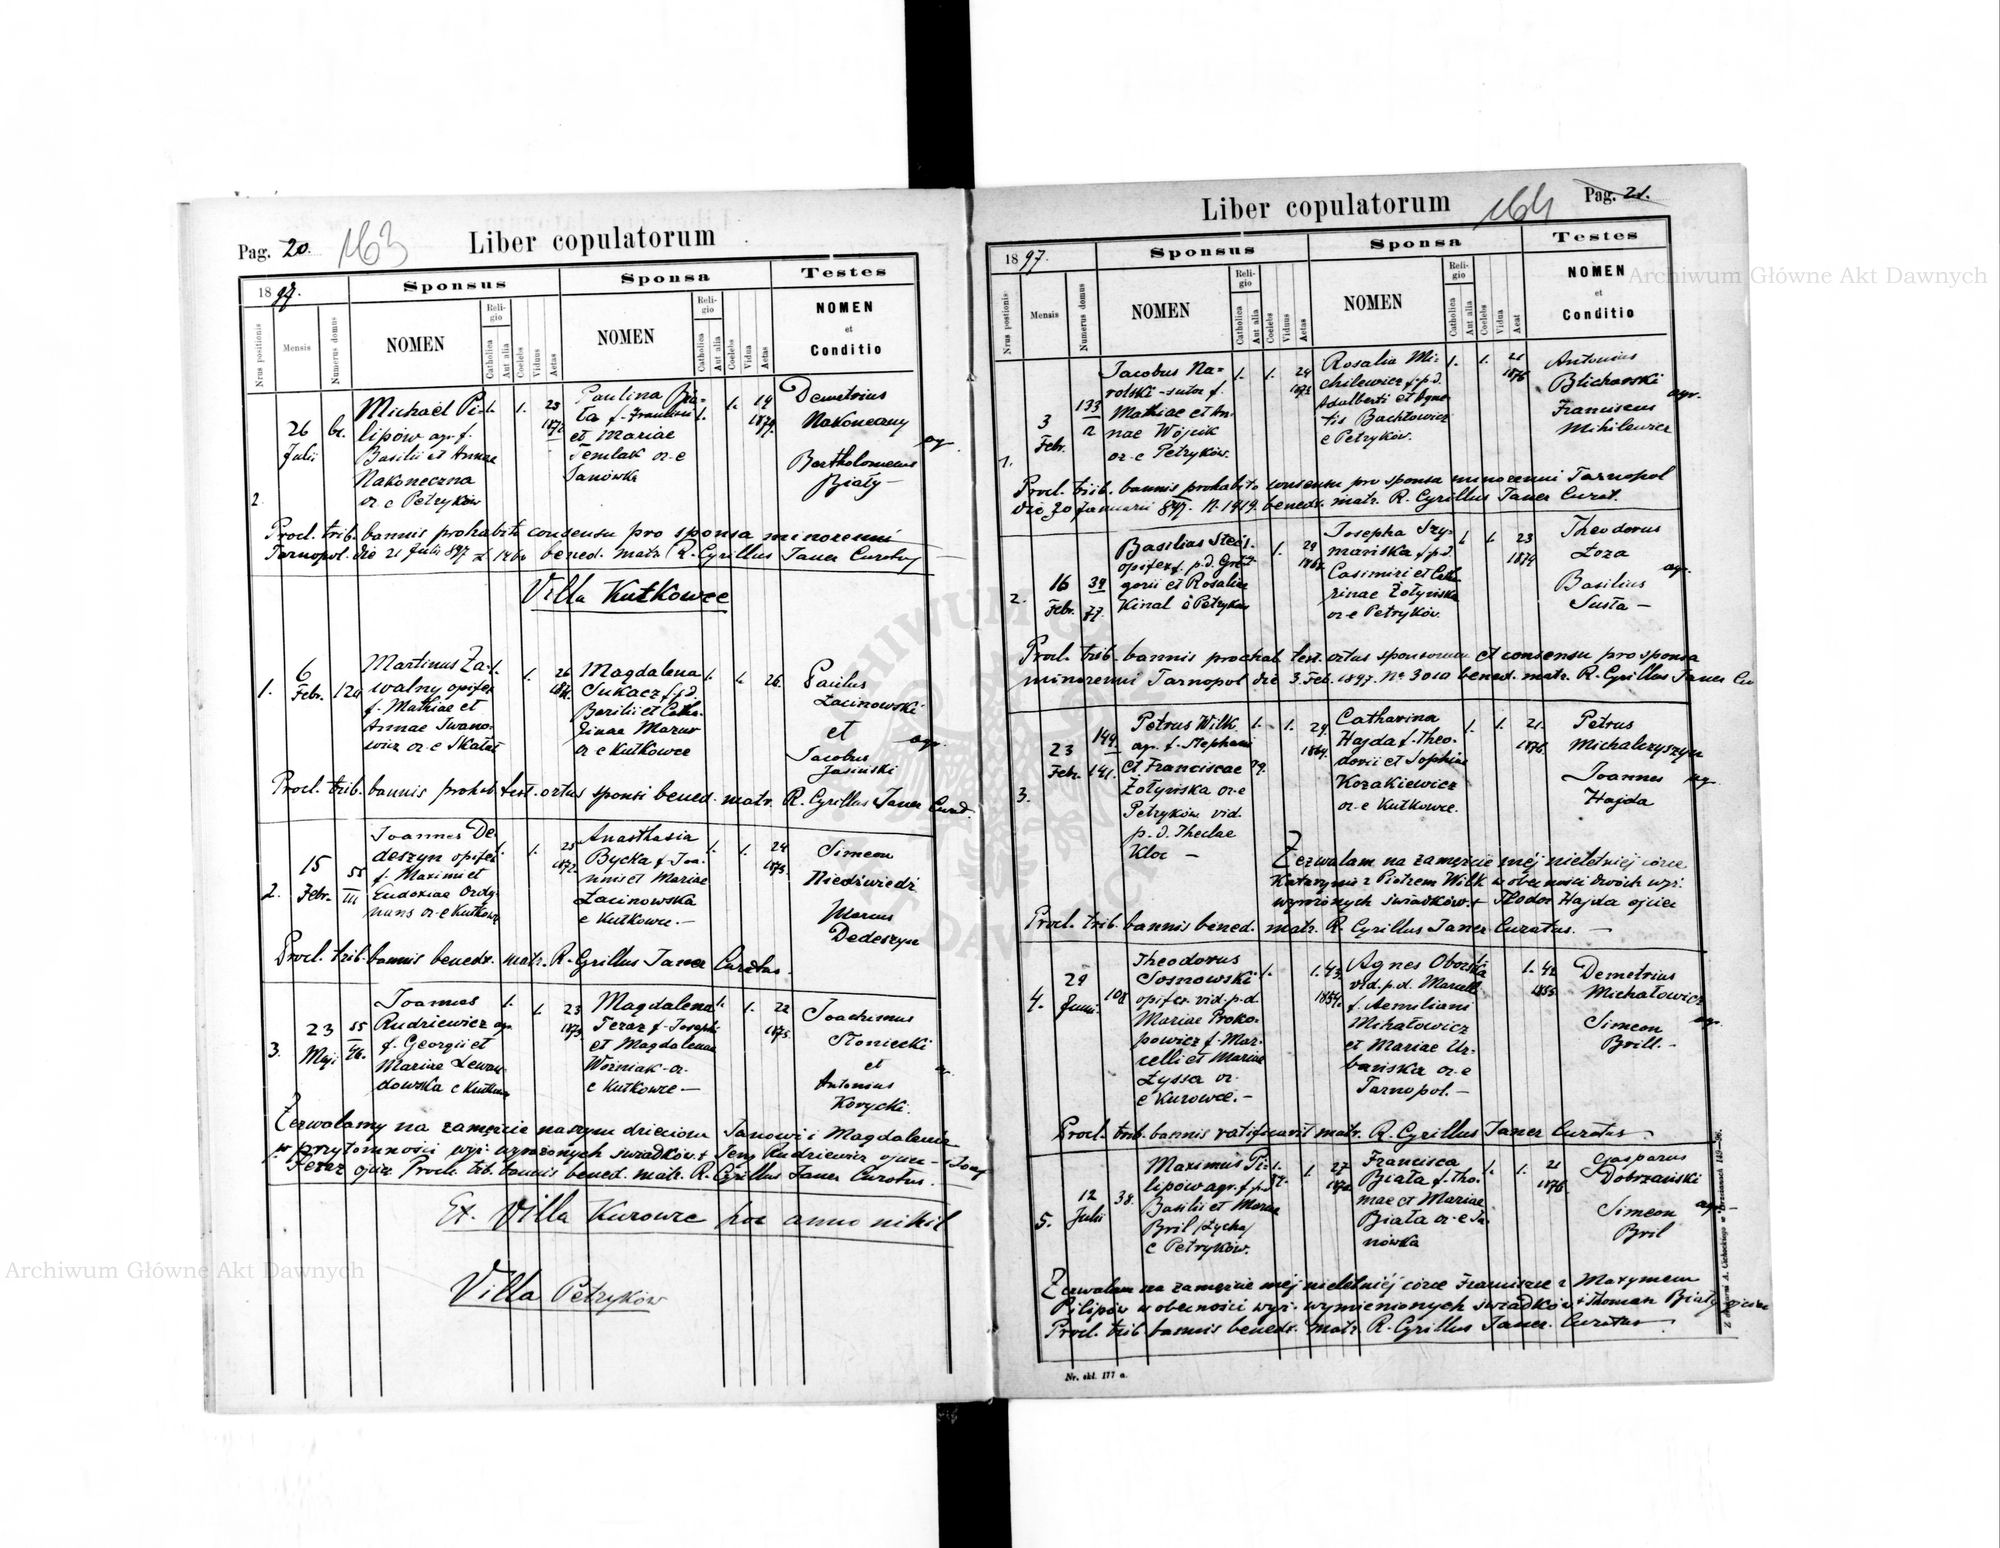 Pag. 20. 163 Liber copulatorum
1897.
Sponsus Sponsa Testes
Nrus positionis Mensis Numerus domus NOMEN Religio Catholica Aut alia Coelebs Viduus Aetas NOMEN Religio Catholica Aut alia Coelebs Vidua Aetas NOMEN et Conditio
2. 26 Julii
Michaël Pi-
lipów agr. f.
Basilii et Annae
Nakoneczna
or. e Petryków
1. 1. 25
1872.
Paulina Bia-
ła f.
et Mariae
Temlak or. e
Janówka
1. 1. 19
1879.
Demetrius
Nakoneczny
agr.
Bartholomeus
Biały
Procl. trib. bannis prohabito consensu pro sponsa minorenni
Tarnopol. dio 21 Julii 897 bened. matr. R. Cyrillus Janer Curatus
Villa Kutkowce
1. 6 Febr. 120
Martinus Za-
walny opifex
f. Mathiae et
Annae Iwano-
wicz or. e Skałat
1. 1. 26
Magdalena
Sukacz f. p. d.
Basilii et Catha-
rinae Mazur
or. e Kutkowce
1. 1. 26.
Paulus
Łacinowski
et
agr.
Jacobus
Jasiński
Procl. trib. bannis prohib. test. ortus sponsi bened. matr. R. Cyrillus Janer Curat.
2. 15 Febr. 55 III
Joannes De-
deszyn opifex
f. Maximi et
Eudoxiae Ordy-
nans or. e Kutkowce
1. 1. 25
1872.
Anasthasia
Bycka f. Joa-
nnis et Mariae
Łacinowska
e Kutkowce. -
1. 1. 24
1873.
Simeon
Niedźwiedź
Marcus
Dedeszyn
Procl. trib. bannis benedx. matr. R. Cyrillus Janer Curatus.
3. 23 Maji 55 46.
Joannes
Rudziewicz agr.
f. Georgii et
Mariae Lewan-
dowska e Kutkowce
1. 1. 23
Magdalena
Feraz f. Josephi
et Magdalenae
Woźniak or.
e Kutkowce -
1. 1. 22
1875.
Joachimus
Słoniecki
et
Antonius
Korycki.
Zezwalamy na zamęście naszym dzieciom Janowi i Magdalenie
w przytomności wyż. wymienionych świadków. + Jerzy Rudziewicz ojciec - + Józef
Feraz ojciec Procl. trib. bannis bened. matr. R. Cyrillus Janer Curatus.
Ex. Villa Kurowce hoc anno nihil
Villa Petryków
Liber copulatorum 164 Pag. 21.
1897.
Sponsus Sponsa Testes
Nrus positionis Mensis Numerus domus NOMEN Religio Catholica Aut alia Coelebs Viduus Aetas NOMEN Religio Catholica Aut alia Coelebs Vidua Aeat NOMEN et Conditio
1. 3 Febr. 133
Jacobus Na-
rolski - sutor f.
Mathiae et An-
nae Wójcik
or. e Petryków.
1. 1. 24
Rosalia Mi-
chilewicz f. p. d.
Adalberti et Agne-
tis Bachtowicz
e Petryków.
1. 1. 21
1876
Antonius
Blicharski
agr.
Franciscus
Mihilewicz
Procl. trib. bannis prohabito consensu pro sponsa minorenni Tarnopol
die 20 Januarii 897. N. 1419. benedx. matr. R. Cyrillus Janer Curat.
2. 16 Febr. 39 77.
Basilius Stecí
opifex f. p. d. Gre-
gorii et Rosaliae
Kinal e Petryków
1. 29
1868.
Josepha Szy-
mańska f. p. d.
Casimiri et Catha-
rinae Żołyńska
or. e Petryków.
1. 1. 23
1874
Theodorus
Łoza
agr.
Basilius
Susła -
Procl. trib. bannis prochab. test. ortus sponsorum et consensu pro sponsa
minorenni Tarnopol die 3. Feb. 1897. No 3010 bened. matr. R. Cyrillus Janer Cu
3. 23 Febr. 144 141.
Petrus Wilk
agr. f. Stephani
et Franciscae
Żołyńska or. e
Petryków vid.
p. d. Theclae
Kloc -
1. 1. 29.
Catharina
Hajda f. Theo-
dorii et Sophiae
Kozakiewicz
or. e Kutkowce.
1. 1. 21.
1876.
Petrus
Michalczyszyn
Joannes agr.
Hajda
Zezwalam na zamęście mej nieletniej córce
Katarynie z Piotrem Wilk w obecności dwóch wyż.
wymienionych świadków. + Thodor Hajda ojciec
Procl. trib. bannis bened. matr. R. Cyrillus Janer Curatus. -
4. 29 Junii 108
Theodorus
Sosnowski
opifex. vid. p. d.
Mariae Proko-
powicz f. Mar-
celli et Mariae
Łyssa or.
e Kurowce. -
1. 1. 43
1854.
Agnes Oborska
vid. p. d. Marcelli
f. Aemiliani
Mihałowicz
et Mariae Ur-
bańska or. e
Tarnopol. -
1. 42
1855.
Demetrius
Michałowicz
agr.
Simeon
Brill. -
Procl. trib. bannis ratificavit matr. R. Cyrillus Janer Curatus.
5. 12 Julii 38.
Maximus Pi-
lipów agr. f. p. d.
Basilii et Mariae
Bril /Łycha/
e Petryków.
1. 1. 27
1870.
Francisca
Biała f. Tho-
mae et Mariae
Biała or. e Ja-
nówka
1. 1. 21
1876.
Gasparus
Dobrzański
agr.
Simeon
Bril
Zezwalam na zamęście mej nieletniéj córce Franciszce z Maxymem
Pilipów w obecności wyż. wymienionych świadków + Thoman Biały ojciec
Procl. trib. bannis benedx. matr. R. Cyrillus Janer. Curatus.
Nr. skl. 177 a.
Archiwum Główne Akt Dawnych
Archiwum Główne Akt Dawnych